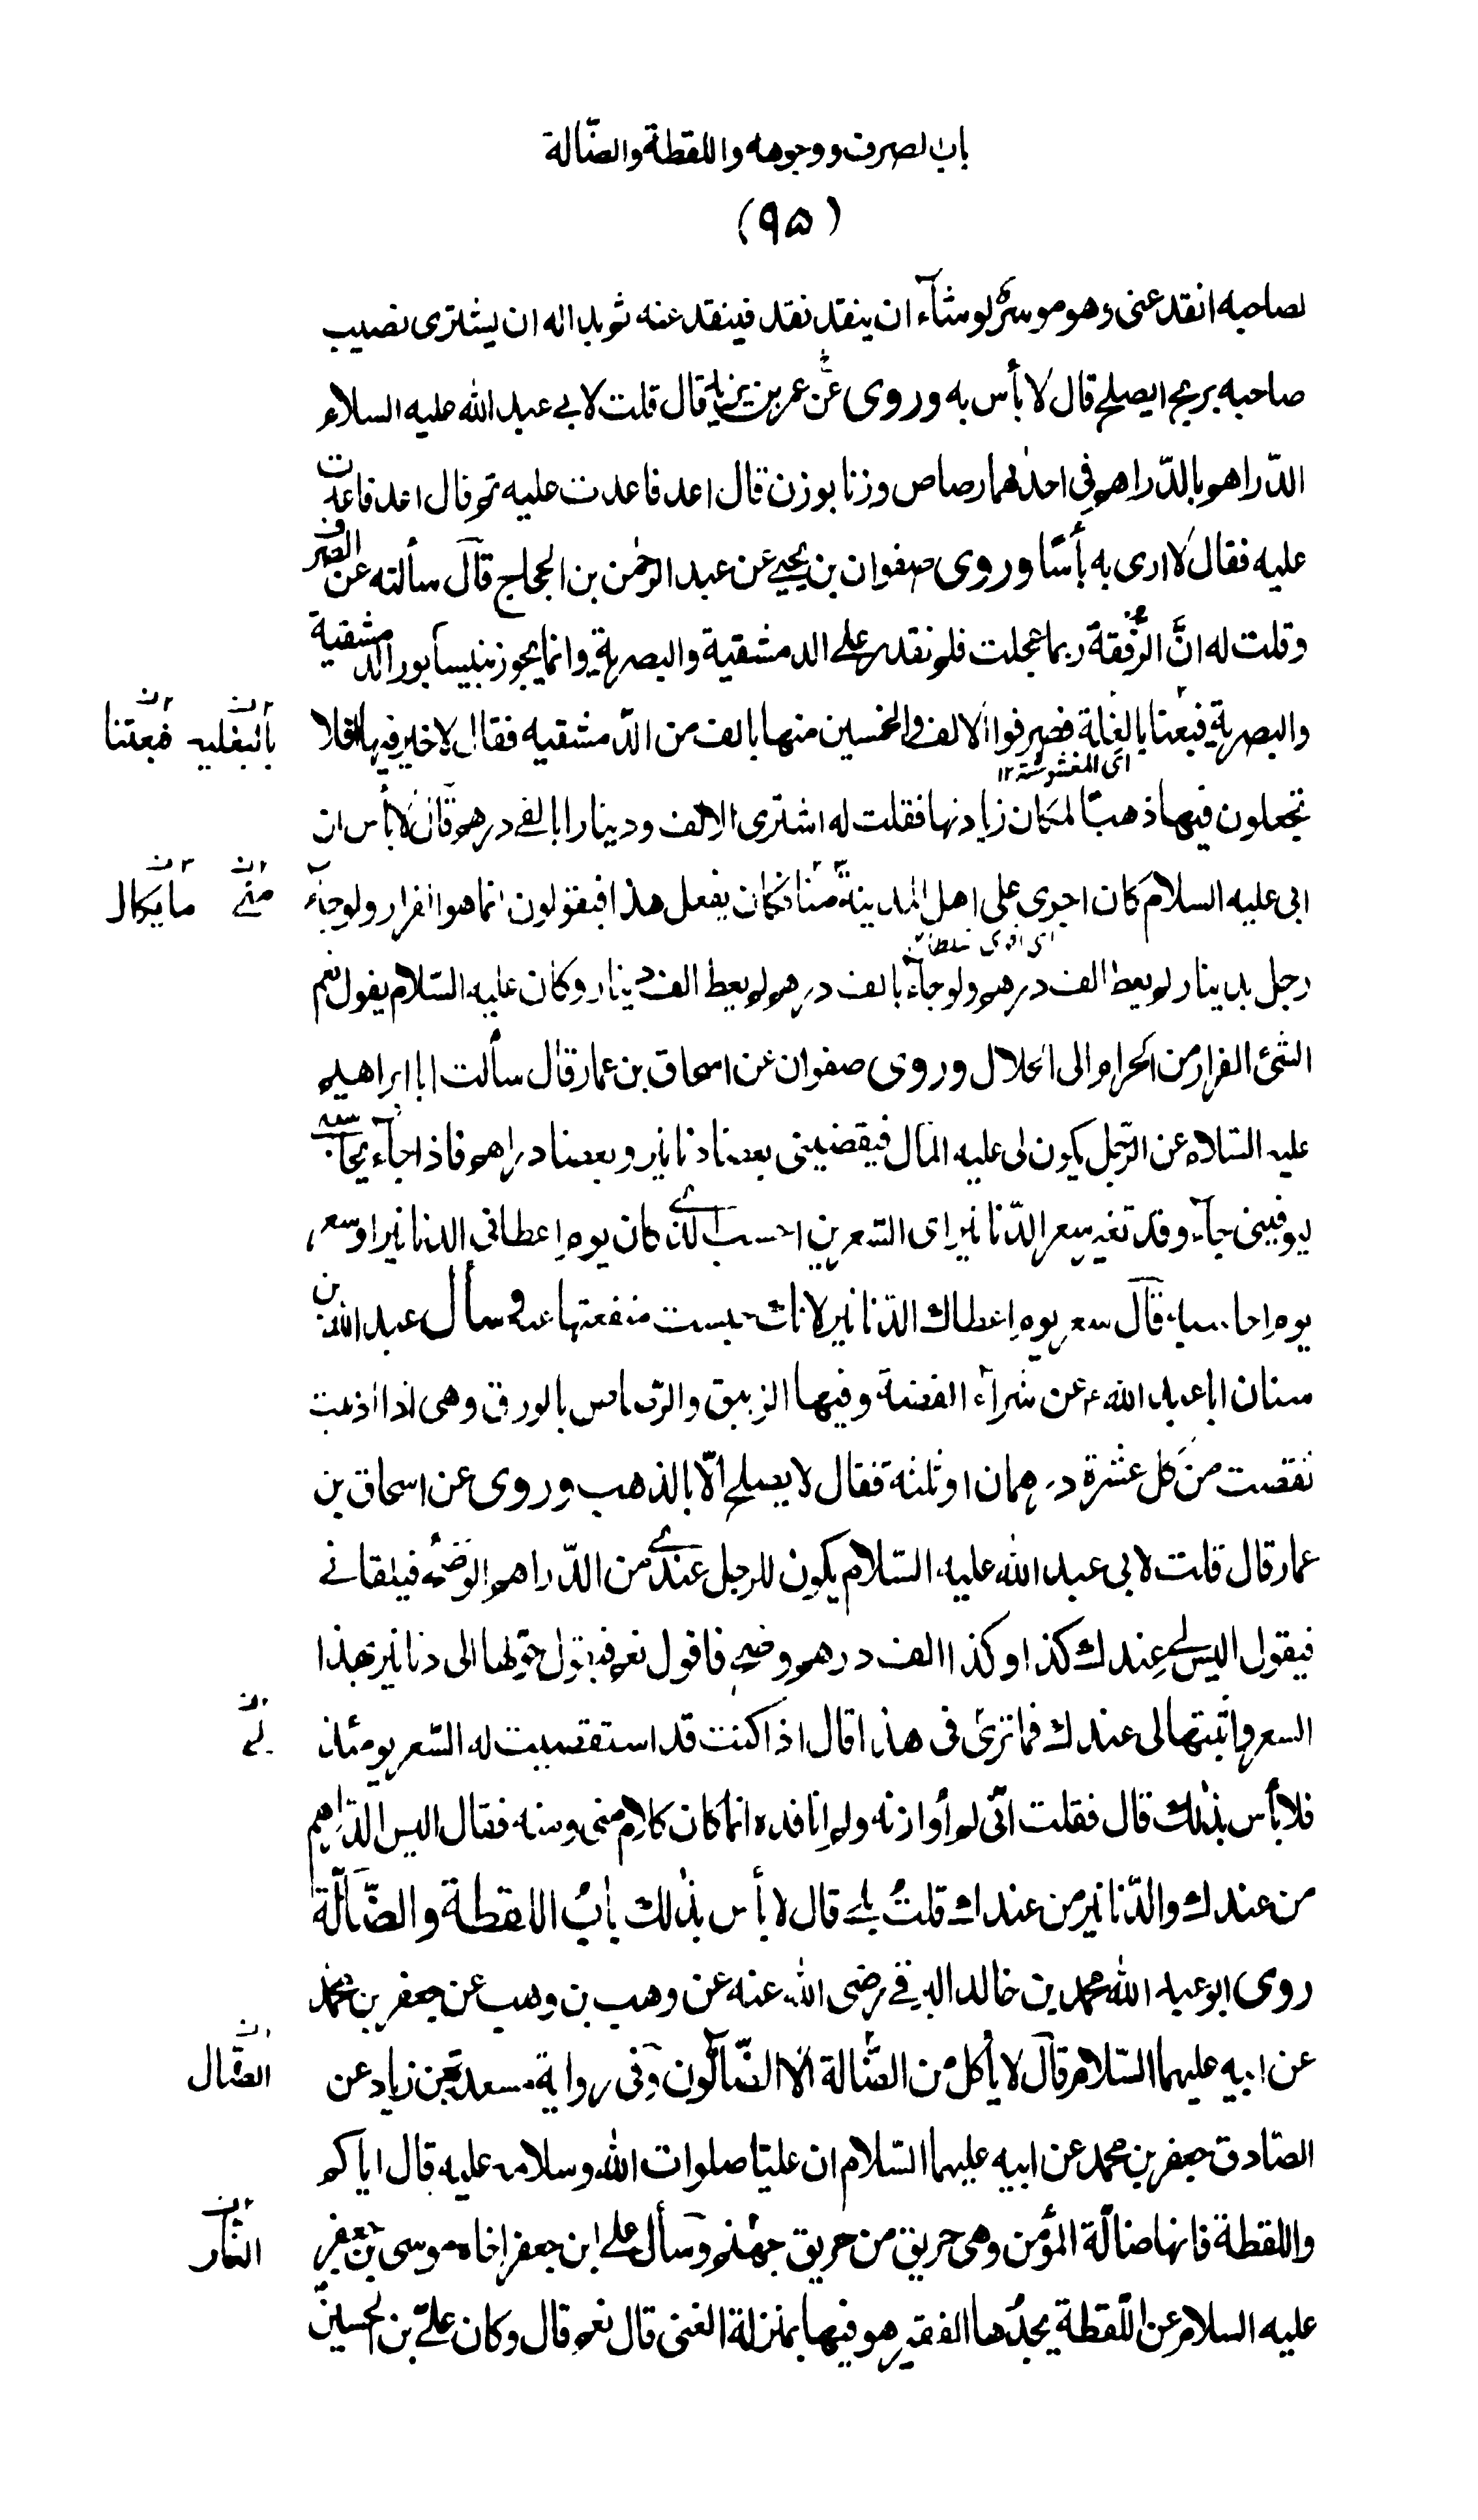 باب الصرف ووجوهه واللقطة والضّالة
(٩۵)
لصاحبه انقد عنى وهو موسرٌ لو شآء ان ينقد نقد فينقد عنه ثم بدا له ان يشترى نصيب
صاحبه بربح ايصلح قال لا بأس به وروى عن عمر بن يزيد قال قلت لابى عبد الله عليه السلام
الدّراهم بالدّراهم فى احدٰهما رصاص وزنا بوزن قال اعد فاعدت عليه ثم قال اعد فاعدت
عليه فقال لا ارى به بأسًا وروى صفوان بن يحيى عن عبد الرحمٰن بن الحجاج قال سألته عن الصرف
وقلت له انَّ الرُّفقة ربما عجلت فلم نقدر على الدمشقية والبصرية وانما يجوز بنيسابور الدمشقية
والبصرية فبعثنا بالغلة فصرفوا الالف والخمسين منها بالف من الدّمشقيه فقال لا خير فيها افلا
بالبغليه فبعثنا
اى المغشوشة ١٢
تجعلون فيها ذهبًا لمكان زيادتها فقلت له اشترى الالف ودينارا بالفى درهم قال لا بأس ان
ابى عليه السلام كان اجرى على اهل المدينة منّا فكان يفعل هذا فيقولون انما هو الفرار ولو جآء
منى ما يكال
رجل بدينار لم يعط الف درهم ولو جآء بالف درهم لم يعط الف دينار وكان عليه السّلام يقول نعم
الشئ الفرار من الحرام الى الحلال وروى صفوان عن اسحاق بن عمار قال سألت ابا ابراهيم
عليه السّلام عن الرّجل يكون لى عليه المال فيقضينى بعضا دنانير وبعضا دراهم فاذا جآء يحاسبنى
ليوفينى جآء وقد تغير سعر الدّنانير اى السّعرين احسب الذى كان يوم اعطانى الدنانير او سعر
يوم احاسبه قال سعر يوم اعطاك الدّنانير لانك حبست منفعتها عنه وسأل عبد الله بن
سنان ابا عبد الله ع عن شرآء الفضة وفيها الزيبق والرّصاص بالورق وهى اذا اذيبت
نقصت من كل عشرة درهمان او ثلثة فقال لا يصلح الّا بالذهب وروى عن اسحاق بن
عمار قال قلت لابى عبد الله عليه السّلام يكون للرجل عندى من الدّراهم الوضح فيلقانى
فيقول اليس لى عندك كذا وكذا الف درهم وضح فاقول نعم فيقول حولها الى دنانير بهذا
السعر واثبتها لى عندك فما ترىٰ فى هذا قال اذا كنت قد استقصيت له السّعر يومئذ
لى
فلا بأس بذٰلك قال فقلت انّى لم أوازنه ولم انافده انما كان كلام منى ومنه فقال اليس الدّراهم
من عندك والدّنانير من عندك قلتُ بلى قال لا بأس بذٰلك بابُ اللقطة والضّآلّة
روى ابو عبد الله محمد بن خالد البرقى رضى الله عنه عن وهب بن وهب عن جعفر بن محمد
عن ابيه عليهما السّلام قال لا يأكل من الضّالة الا الضّآلّون وفى رواية مسعدة بن زياد عن
الضّال
الصّادق جعفر بن محمد عن ابيه عليهما السّلام ان عليّا صلوات الله وسلامه عليه قال اياكم
واللقطة فانها ضالّة المؤمن وهى حريق من حريق جهنم وسأل على ابن جعفر اخاه موسى بن جعفر
النار
عليه السلام عن اللّقطة يجدها الفقير هو فيها بمنزلة الغنى قال نعم قال وكان علىّ بن الحسين